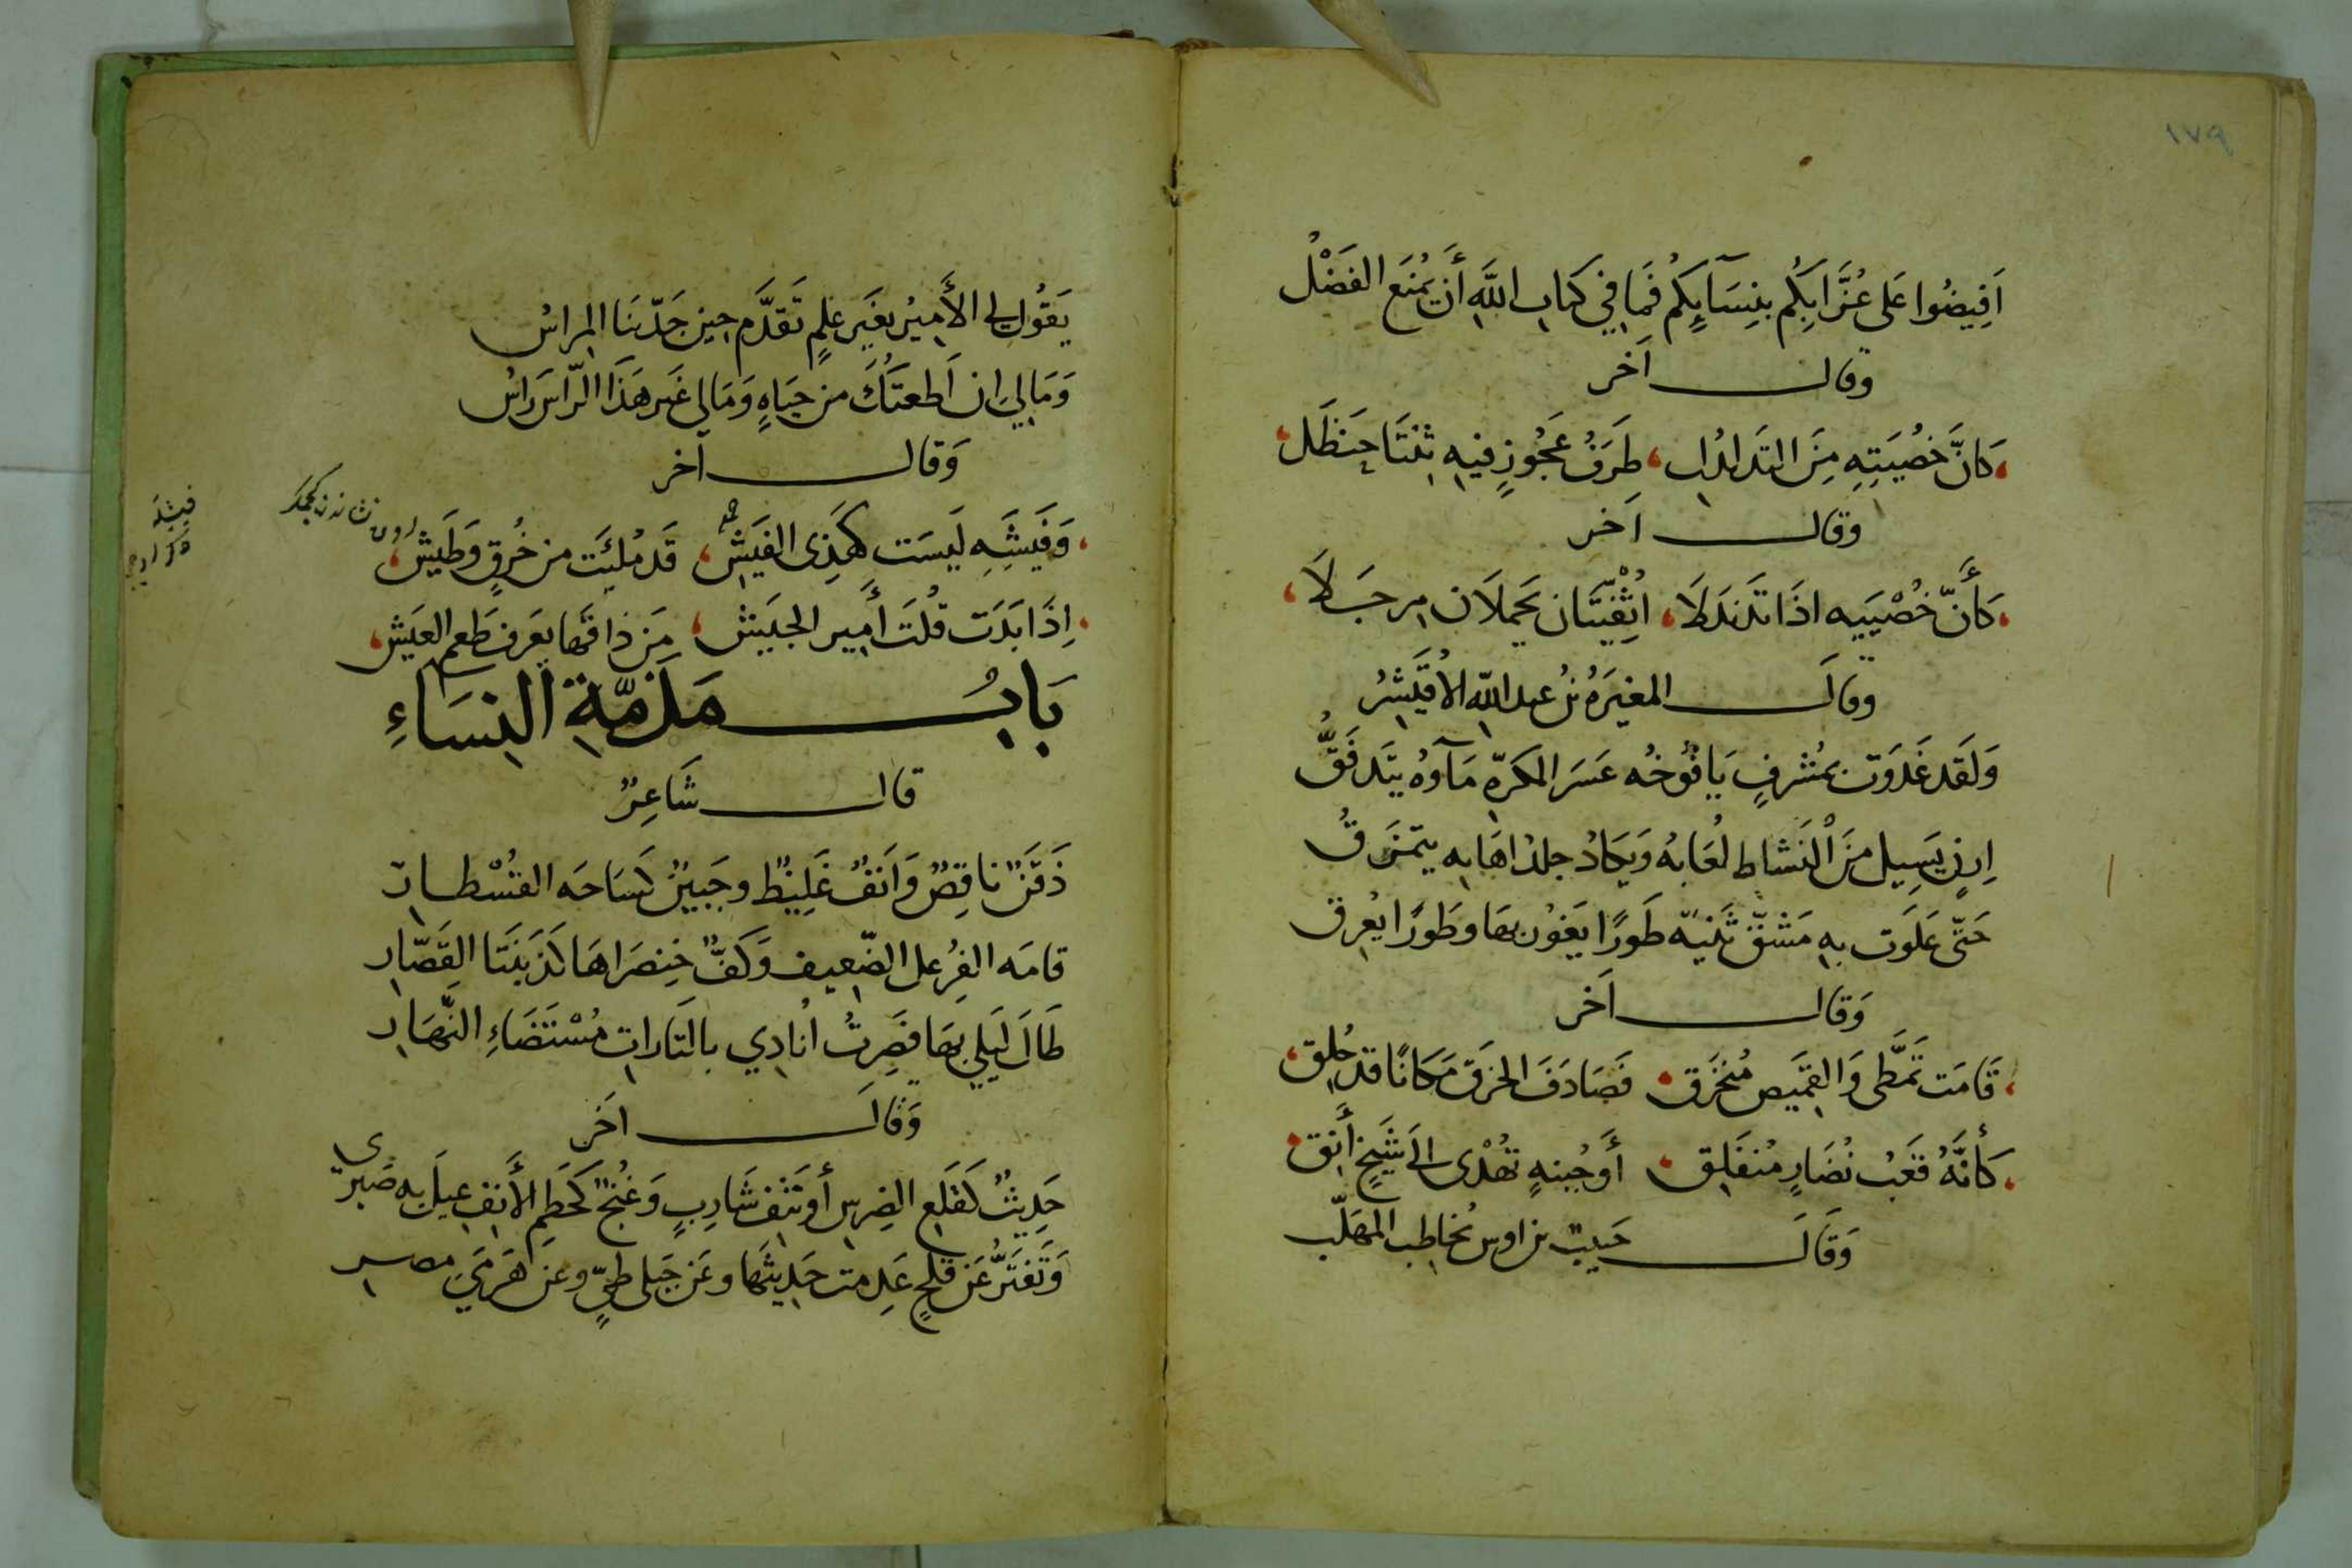 ١٧٩
اَفِيضُوا عَلى عُزَّابِكُم بنِسَآئِكُم فَمَا فِي كتاب اللَّهِ أَن يُمنَع الفَضْل
وقال آخر
كانَّ خُصْيَتِهِ مِنَ التدلدُل طَرَفُ عَجُوزٍ فيهِ ثِنْتَا حَنظَل
وقال اَخر
كأَنَّ خُصْيَيه اذَا تَدَلدَلَا اثْفِيّتَان يَحمِلَان مِرجَلَا
وقالَ المغيَرهُ بنُ عبد اللّه الاُقَيْشِرُ
وَلَقَد غَدَوت بمُشرفٍ يَافُوخُه عَسَر المكَرّهِ مَآوهُ يَتَدفَّقُ
اَرِنٍ يَسِيل مِنَ النَّشاط لُعَابهُ وَيَكادُ جلدُ اهَابه يتمَزقُ
حَتّى عَلَوت بهِ مَشَقَّ ثَنيّه طَورًا يَغُور بهَا وَطَورًا يغرق
وَقال اَخر
قَامَت تَمَطَّى وَالقَمِيص مُنخَرَق فَصَادَفَ الخرَق مَكانًا قد حُلِق
كأنَّهُ قَعبُ نُضَارٍ مُنفَلِق أَوجُبنهٍ تُهْدى الى شَيخٍ أَنِق
وَقَالَ حَبيبُ بن اوس يُخاطب المهَلّب
يَقُول لي الأَميرُ بغَير علمٍ تَقدَّم حين جَدّ بنَا المِراسُ
وَمَا لي ان اَطَعتُكَ من حَيَاهٍ وَمَا لي غَير هَذَا الرّاس رَاسُ
وَقال آخر
وَفَيشَهٍ لَيسَت كَهَذِى الفَيش قَد مُلئَت من خُرقٍ وَطَيش
فيشله
اِذَا بَدَت قُلتَ أَمِير الجَيش مَن ذاقَهَا يَعرَف طَعم العَيش
بَابُ مَذمّةِ النِسَاءِ
قال شَاعِرٌ
ذَقَنٌ ناقِصٌ وَاَنفٌ غَلِيظٌ وجَبينٌ كسَاحَه القسْطار
قامَه الفُرعل الضّعيف وَكَفٌّ خِنصَراهَا كَذَينَتَا القَصّار
طَالَ لَيلي بهَا فَصِرتُ اُنادِي بالثَارات مُسْتَضَاءِ النَّهَار
وَقالَ اَخَر
حَدِيثٌ كقَلع الضِرس أو نَتف شَاربٍ وَغُنجٌ كَحَطمِ الأَنف عيلَ به صَبرى
وَتَفتَرُّ عَن قلحٍ عَدِمت حَديثَها وعَن جَبلى طيٍّ وعَن هَرَمَي مصر